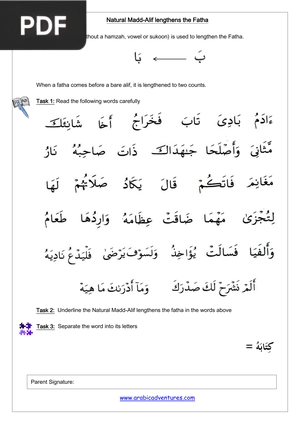 PDF
Natural Madd-Alif lengthens the Fatha
hout a hamzah, vowel or sukoon) is used to lengthen the Fatha.
بَ ⟶ بَا
When a fatha comes before a bare alif, it is lengthened to two counts.
Task 1: Read the following words carefully
ءَادَمُ بَادِىَ تَابَ فَخَرَاجُ أَخَا شَانِئَكَ
مَّثَانِىَ وَأَصْلَحَا جَنهَدَاكَ ذَاتَ صَاحِبُهُ نَارُ
مَغَانِمَ فَاتَكُمْ قَالَ يَكَادُ صَلَاتُهُمْ لَهَا
لِتُجْزَىٰ مَهْمَا ضَاقَتْ عِظَامَهُ وَارِدُهَا طَعَامُ
وَأَلْفَيَا فَسَالَتْ يُؤَاخِذُ وَلَسَوْفَ يَرْضَىٰ فَلْيَدْعُ نَادِيَهُ
أَلَمْ نَشْرَحْ لَكَ صَدْرَكَ وَمَا أَدْرَىٰكَ مَا هِيَهْ
Task 2: Underline the Natural Madd-Alif lengthens the fatha in the words above
Task 3: Separate the word into its letters
كِتَابَهُ =
Parent Signature:
www.arabicadventures.com